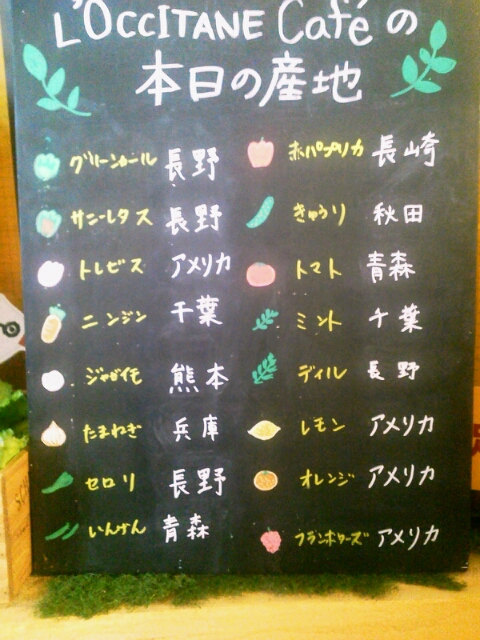 L'OCCITANE Caféの
本日の産地
グリーンカール 長野
サニーレタス 長野
トレビス アメリカ
ニンジン 千葉
ジャガイモ 熊本
たまねぎ 兵庫
セロリ 長野
いんげん 青森
赤パプリカ 長崎
きゅうり 秋田
トマト 青森
ミント 千葉
ディル 長野
レモン アメリカ
オレンジ アメリカ
フランボワーズ アメリカ